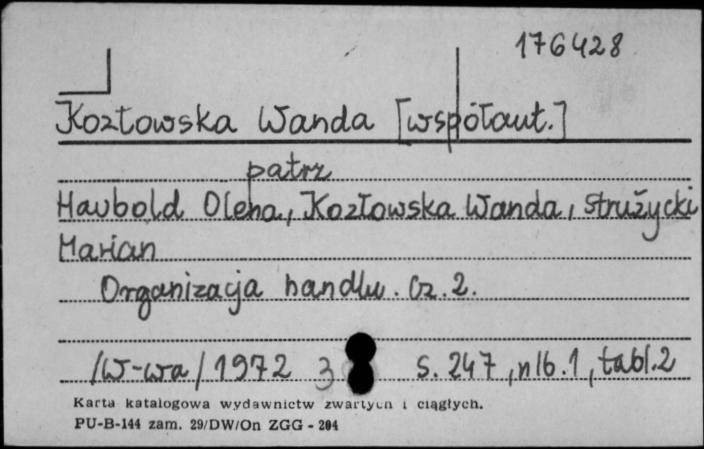 176428
Kozłowska Wanda [współaut.]
patrz
Haubold Olena, Kozłowska Wanda, Strużycki
Marian
Organizacja handlu. Cz. 2.
/W-wa/ 1972 s. 247, nlb. 1, tabl. 2
Karta katalogowa wydawnictw zwartych i ciągłych.
PU-B-144 zam. 29/DW/On ZGG - 204